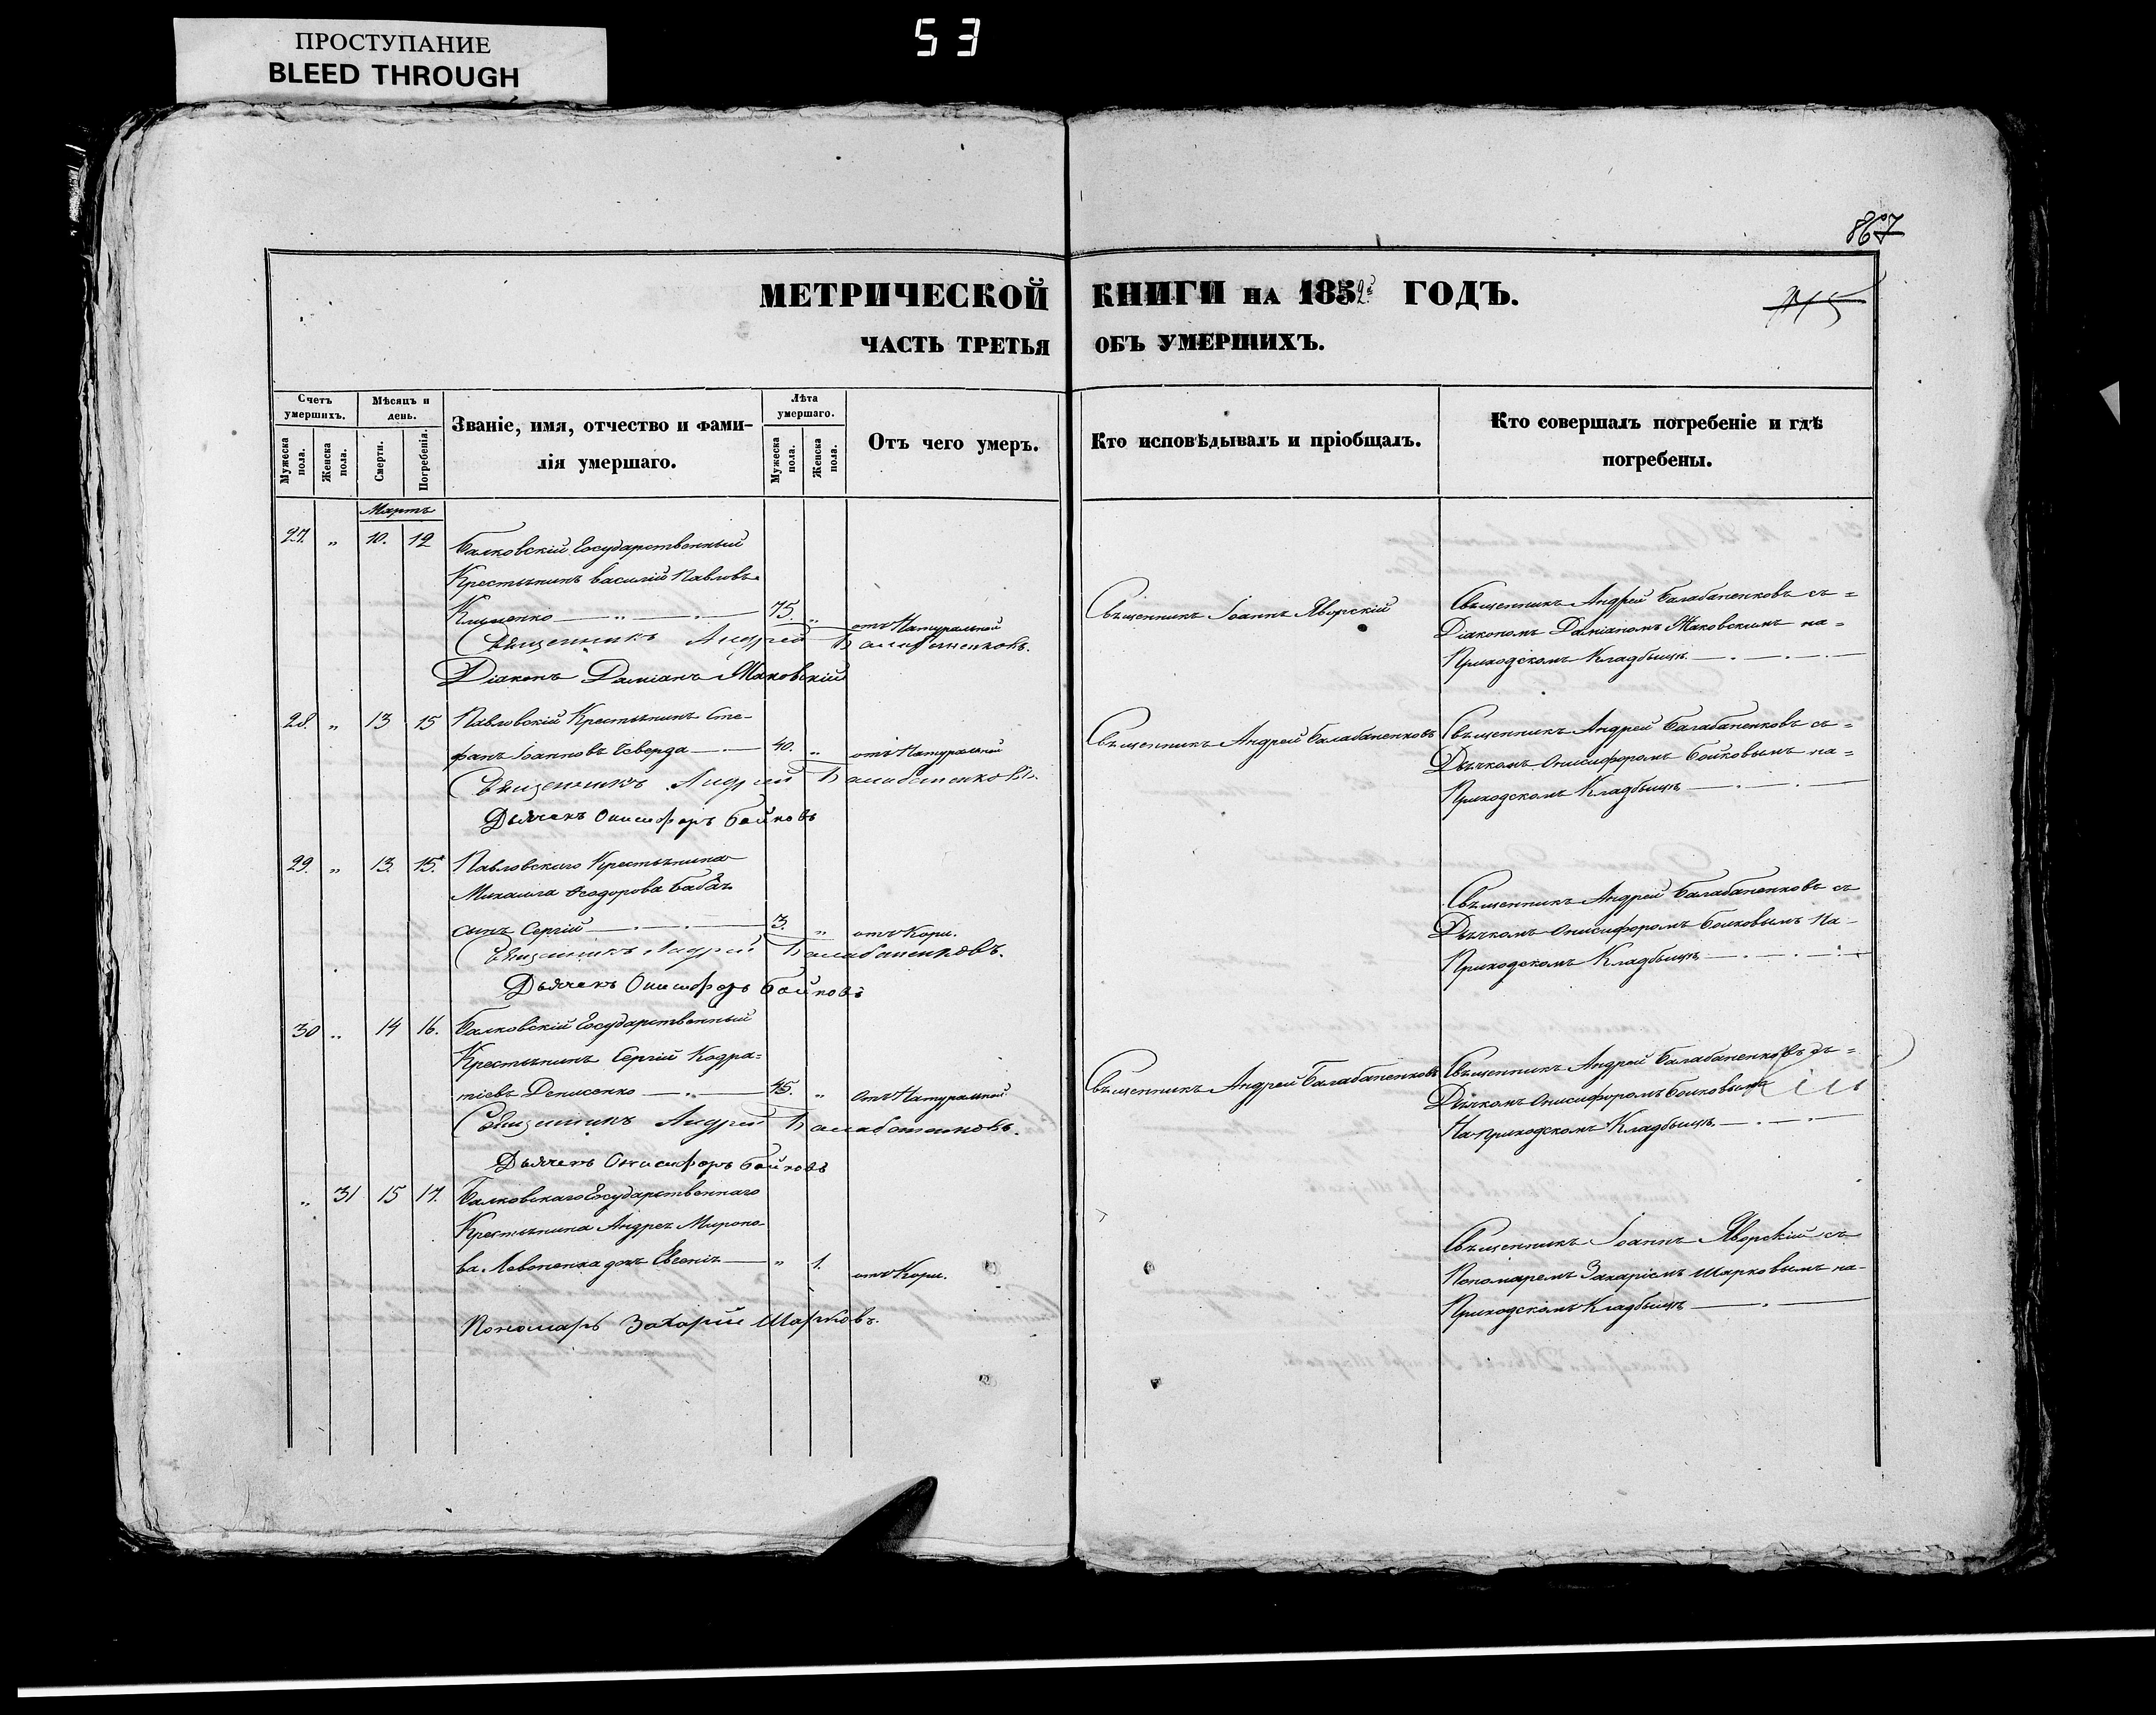 ПРОСТУПАНИЕ
BLEED THROUGH
53
867
МЕТРИЧЕСКОЙ КНИГИ НА 1852й ГОДЪ.
ЧАСТЬ ТРЕТЬЯ ОБЪ УМЕРШИХЪ.
Счетъ умершихъ.
Мужеска пола.
Женска пола.
Мѣсяцъ и день.
Смерти.
Погребенія.
Званіе, имя, отчество и фами-
лія умершаго.
Лѣта умершаго.
Мужеска пола.
Женска пола.
Отъ чего умеръ.
Кто исповѣдывалъ и пріобщалъ.
Кто совершалъ погребеніе и гдѣ
погребены.
Мартъ
27. „ 10. 12 Балковскій Государственный
Крестьянинъ Василій Павловъ
Клименко 75. „ отъ Натуральной
Священникъ Іоаннъ Яворскій
Священникъ Андрей Балабаненковъ съ=
Діакономъ Даміаномъ Маковскимъ на=
Приходскомъ Кладбищѣ
Священникъ Андрей Балабаненковъ.
Діаконъ Даміанъ Маковскій
28. „ 13 15 Павловскій Крестьянинъ Сте-
фанъ Іоанновъ 40. „ отъ Натуральной
Священникъ Андрей Балабаненковъ
Священникъ Андрей Балабаненковъ съ=
Дьячкомъ Онисифоромъ Бойковымъ на=
Приходскомъ Кладбищѣ
Священникъ Андрей Балабаненковъ.
Дьячекъ Онисифоръ Бойковъ
29. „ 13. 15. Павловскаго Крестьянина
Михаила Ѳеодорова
сынъ Сергій 3. „ отъ Кори.
Священникъ Андрей Балабаненковъ съ
Дьячкомъ Онисифоромъ Бойковымъ На-
Приходскомъ Кладбищѣ
Священникъ Андрей Балабаненковъ.
Дьячекъ Онисифоръ Бойковъ
30 „ 14 16. Балковскій Государственный
Крестьянинъ Сергій Кодра=
тіевъ Денисенко 45. „ Отъ Натуральной
Священникъ Андрей Балабаненковъ
Священникъ Андрей Балабаненковъ съ=
Дьячкомъ Онисифоромъ Бойковымъ
На Приходскомъ Кладбищѣ
Священникъ Андрей Балабаненковъ.
Дьячекъ Онисифоръ Бойковъ
„ 31 15 17. Балковскаго Государственнаго
Крестьянина Андрея Мироно-
ва Левоненка дочь Евгенія „ 1. отъ Кори.
Священникъ Іоаннъ Яворскій съ
Пономаремъ Захаріемъ Шарковымъ на-
Приходскомъ Кладбищѣ
Пономарь Захарій Шарковъ.